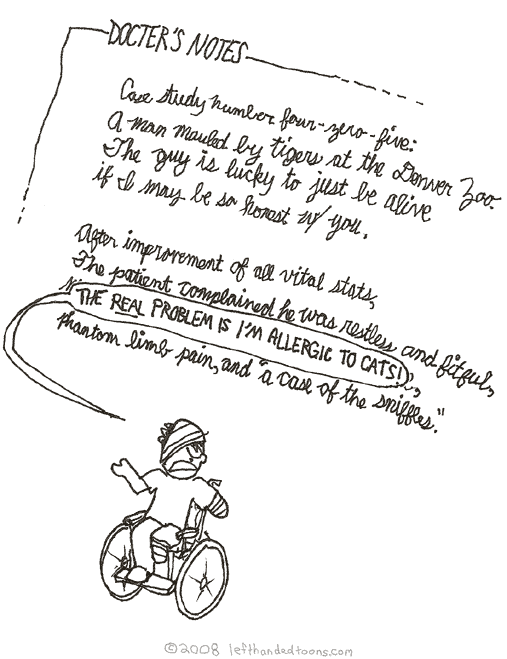 DOCTER'S NOTES
Case study number four-zero-five:
A man mauled by tigers at the Denver Zoo.
The guy is lucky to just be alive
if I may be so honest w/ you.
After improvement of all vital stats,
The patient complained he was restless and fitful,
THE REAL PROBLEM IS I'M ALLERGIC TO CATS!
phantom limb pain, and "a case of the sniffles."
©2008 lefthandedtoons.com